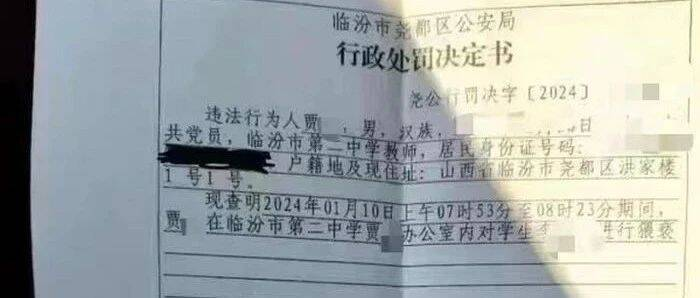 临汾市尧都区公安局
行政处罚决定书
尧公行罚决字〔2024〕
违法行为人贾 ，男，汉族，
共党员，临汾市第二中学教师，居民身份证号码：
户籍地及现住址：山西省临汾市尧都区洪家楼
1号1号。
现查明2024年01月10日上午07时53分至08时23分期间，
贾 在临汾市第二中学贾 办公室内对学生 进行猥亵